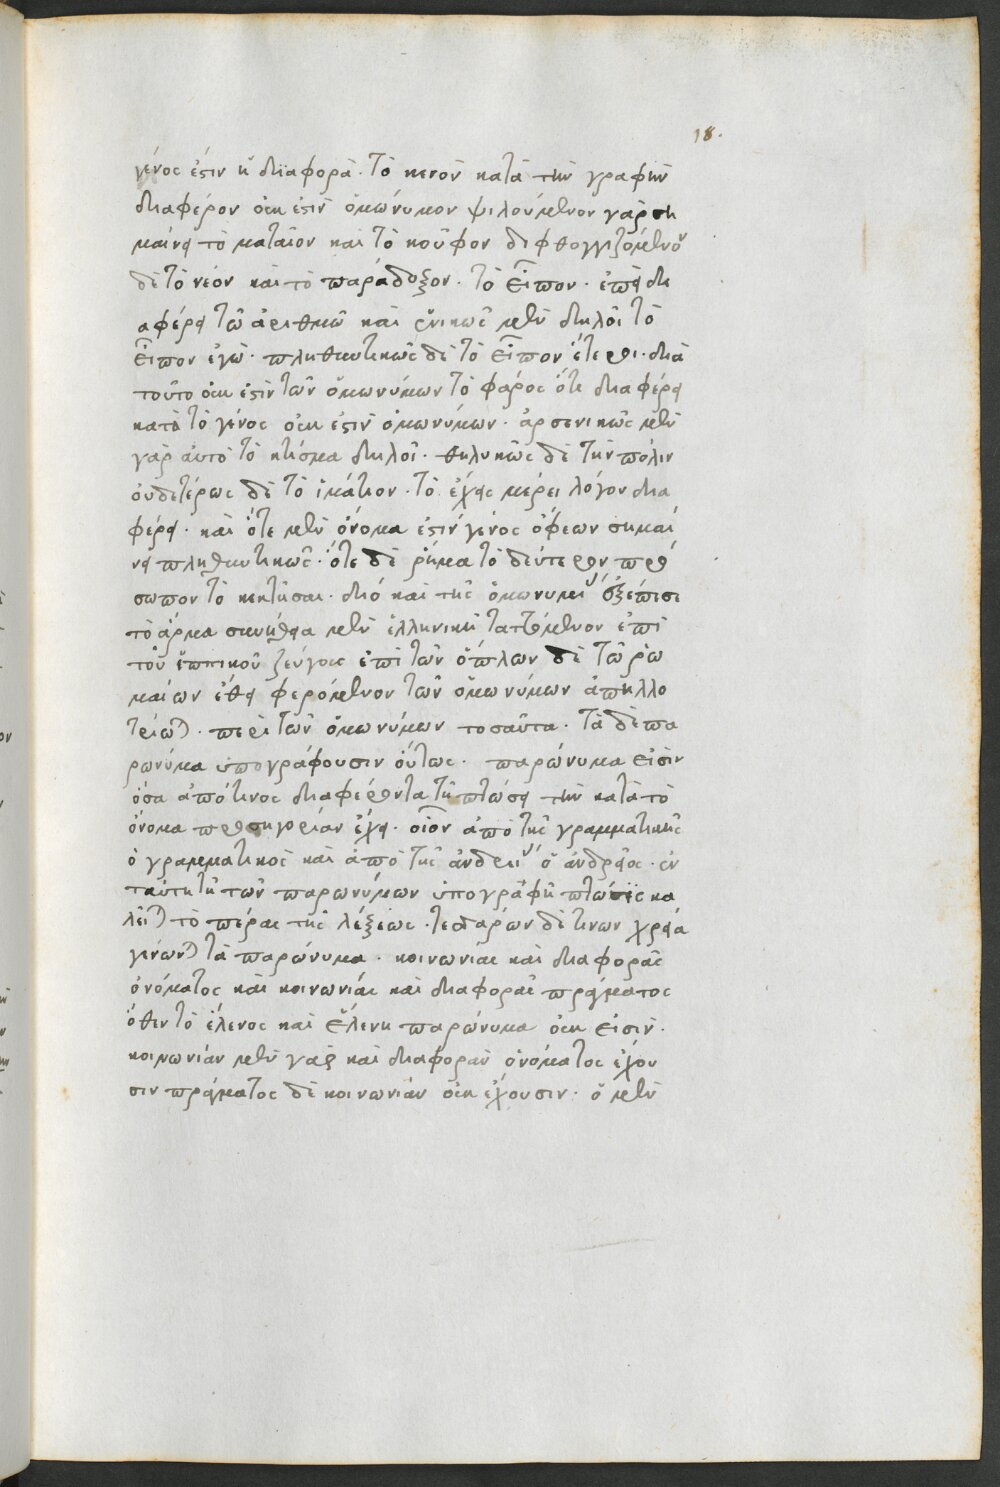 18.
γένος ἐστὶν ἢ διαφορὰ. τὸ κενὸν κατὰ τὴν γραφὴν
διαφέρον οὐκ ἐστὶν ὁμώνυμον ψιλούμενον γὰρ ση
μαίνει τὸ μάταιον καὶ τὸ κοῦφον διφθογγιζόμενον
δὲ τὸ νέον καὶ τὸ παράδοξον. τὸ εἶπον. ἐπεὶ δι
αφέρει τῶ ἀριθμῶ καὶ ἑνικῶς μὲν δηλοῖ τὸ
εἶπον ἐγώ. πληθυντικῶς δὲ τὸ εἶπον ἕτεροι. διὰ
τοῦτο οὐκ ἐστὶν τῶν ὁμωνύμων τὸ φάρος ὅτι διαφέρει
κατὰ τὸ γένος οὐκ ἐστὶν ὁμωνύμων. ἀρσενικῶς μὲν
γὰρ αὐτὸ τὸ κτίσμα δηλοῖ. θηλυκῶς δὲ τὴν πόλιν
οὐδετέρως δὲ τὸ ἱμάτιον. τὸ ἔχεις μέρει λόγου δια
φέρει. καὶ ὅτε μὲν ὄνομα ἐστὶν γένος ὄφεων σημαί
νει πληθυντικῶς. ὅτε δὲ ῥῆμα τὸ δεύτερον πρό
σωπον τὸ κέκτησαι. διό καὶ τῆς ὁμωνυμίας ἐξέπεσε
τὸ ἄρμα συνήθεια μὲν ἑλληνικῆ ταττόμενον ἐπὶ
τοῦ ἱππικοῦ ζεύγους ἐπὶ τῶν ὅπλων δὲ τῶ ῥω
μαίων ἔθει φερόμενον τῶν ὁμωνύμων ἀπηλλο
τρίωται. περὶ τῶν ὁμωνύμων τοσαῦτα. τὰ δὲ πα
ρώνυμα ὑπογράφουσιν οὕτως. παρώνυμα εἰσὶν
ὅσα ἀπό τινος διαφέροντα τῆ πτώσει τὴν κατὰ τὸ
ὄνομα προσηγορίαν ἔχει. οἷον ἀπὸ τῆς γραμματικῆς
ὁ γραμματικὸς καὶ ἀπὸ τῆς ἀνδρείας ὁ ἀνδρεῖος. ἐν
ταύτη τῆ τῶν παρωνύμων ὑπογραφῆ πτώσις κα
λεῖται τὸ πέρας τῆς λέξεως. τεσσάρων δὲ τινων χρεία
γίνωνται τὰ παρώνυμα. κοινωνίας καὶ διαφορᾶς
ὀνόματος καὶ κοινωνίας καὶ διαφορᾶς πράγματος
ὅθεν τὸ ἕλενος καὶ ἕλενη παρώνυμα οὐκ εἰσίν.
κοινωνίαν μὲν γὰρ καὶ διαφορὰν ὀνόματος ἔχου
σιν πράγματος δὲ κοινωνίαν οὐκ ἔχουσιν. ὁ μὲν